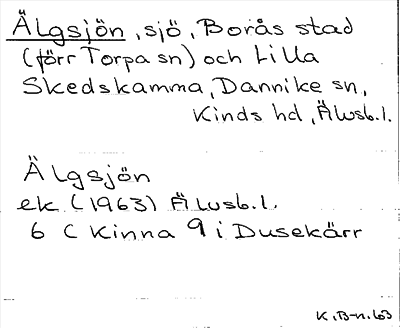 Älgsjön, sjö, Borås stad
(förr Torpa sn) och Lilla
Skedskamma, Dannike sn,
Kinds hd, Älvsb.l.
Älgsjön
ek (1963) Älvsb.l.
6 C Kinna 9 i Dusekärr
K.B-n.63